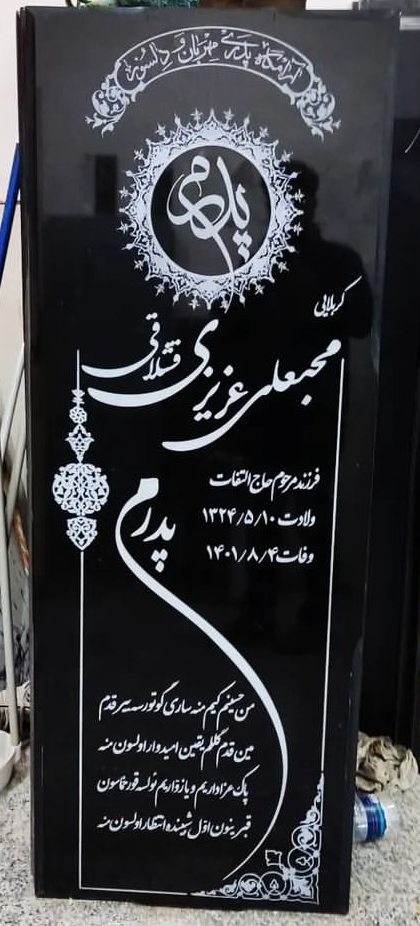 آرامگاه پدری مهربان و دلسوز
پدرم
کربلایی
محبعلی عزیزی قشلاقی
فرزند مرحوم حاج التفات
ولادت ۱۳۲۴/۵/۱۰
وفات ۱۴۰۱/۸/۴
پدرم
من حسینم کیم منه ساری گوتورسه بیر قدم
مین قدم گللم یقین امیدوار اولسون منه
پاک عزاداریم و یا زواریم اولسه قورخماسون
قبرینون اوّل شبینده انتظار اولسون منه